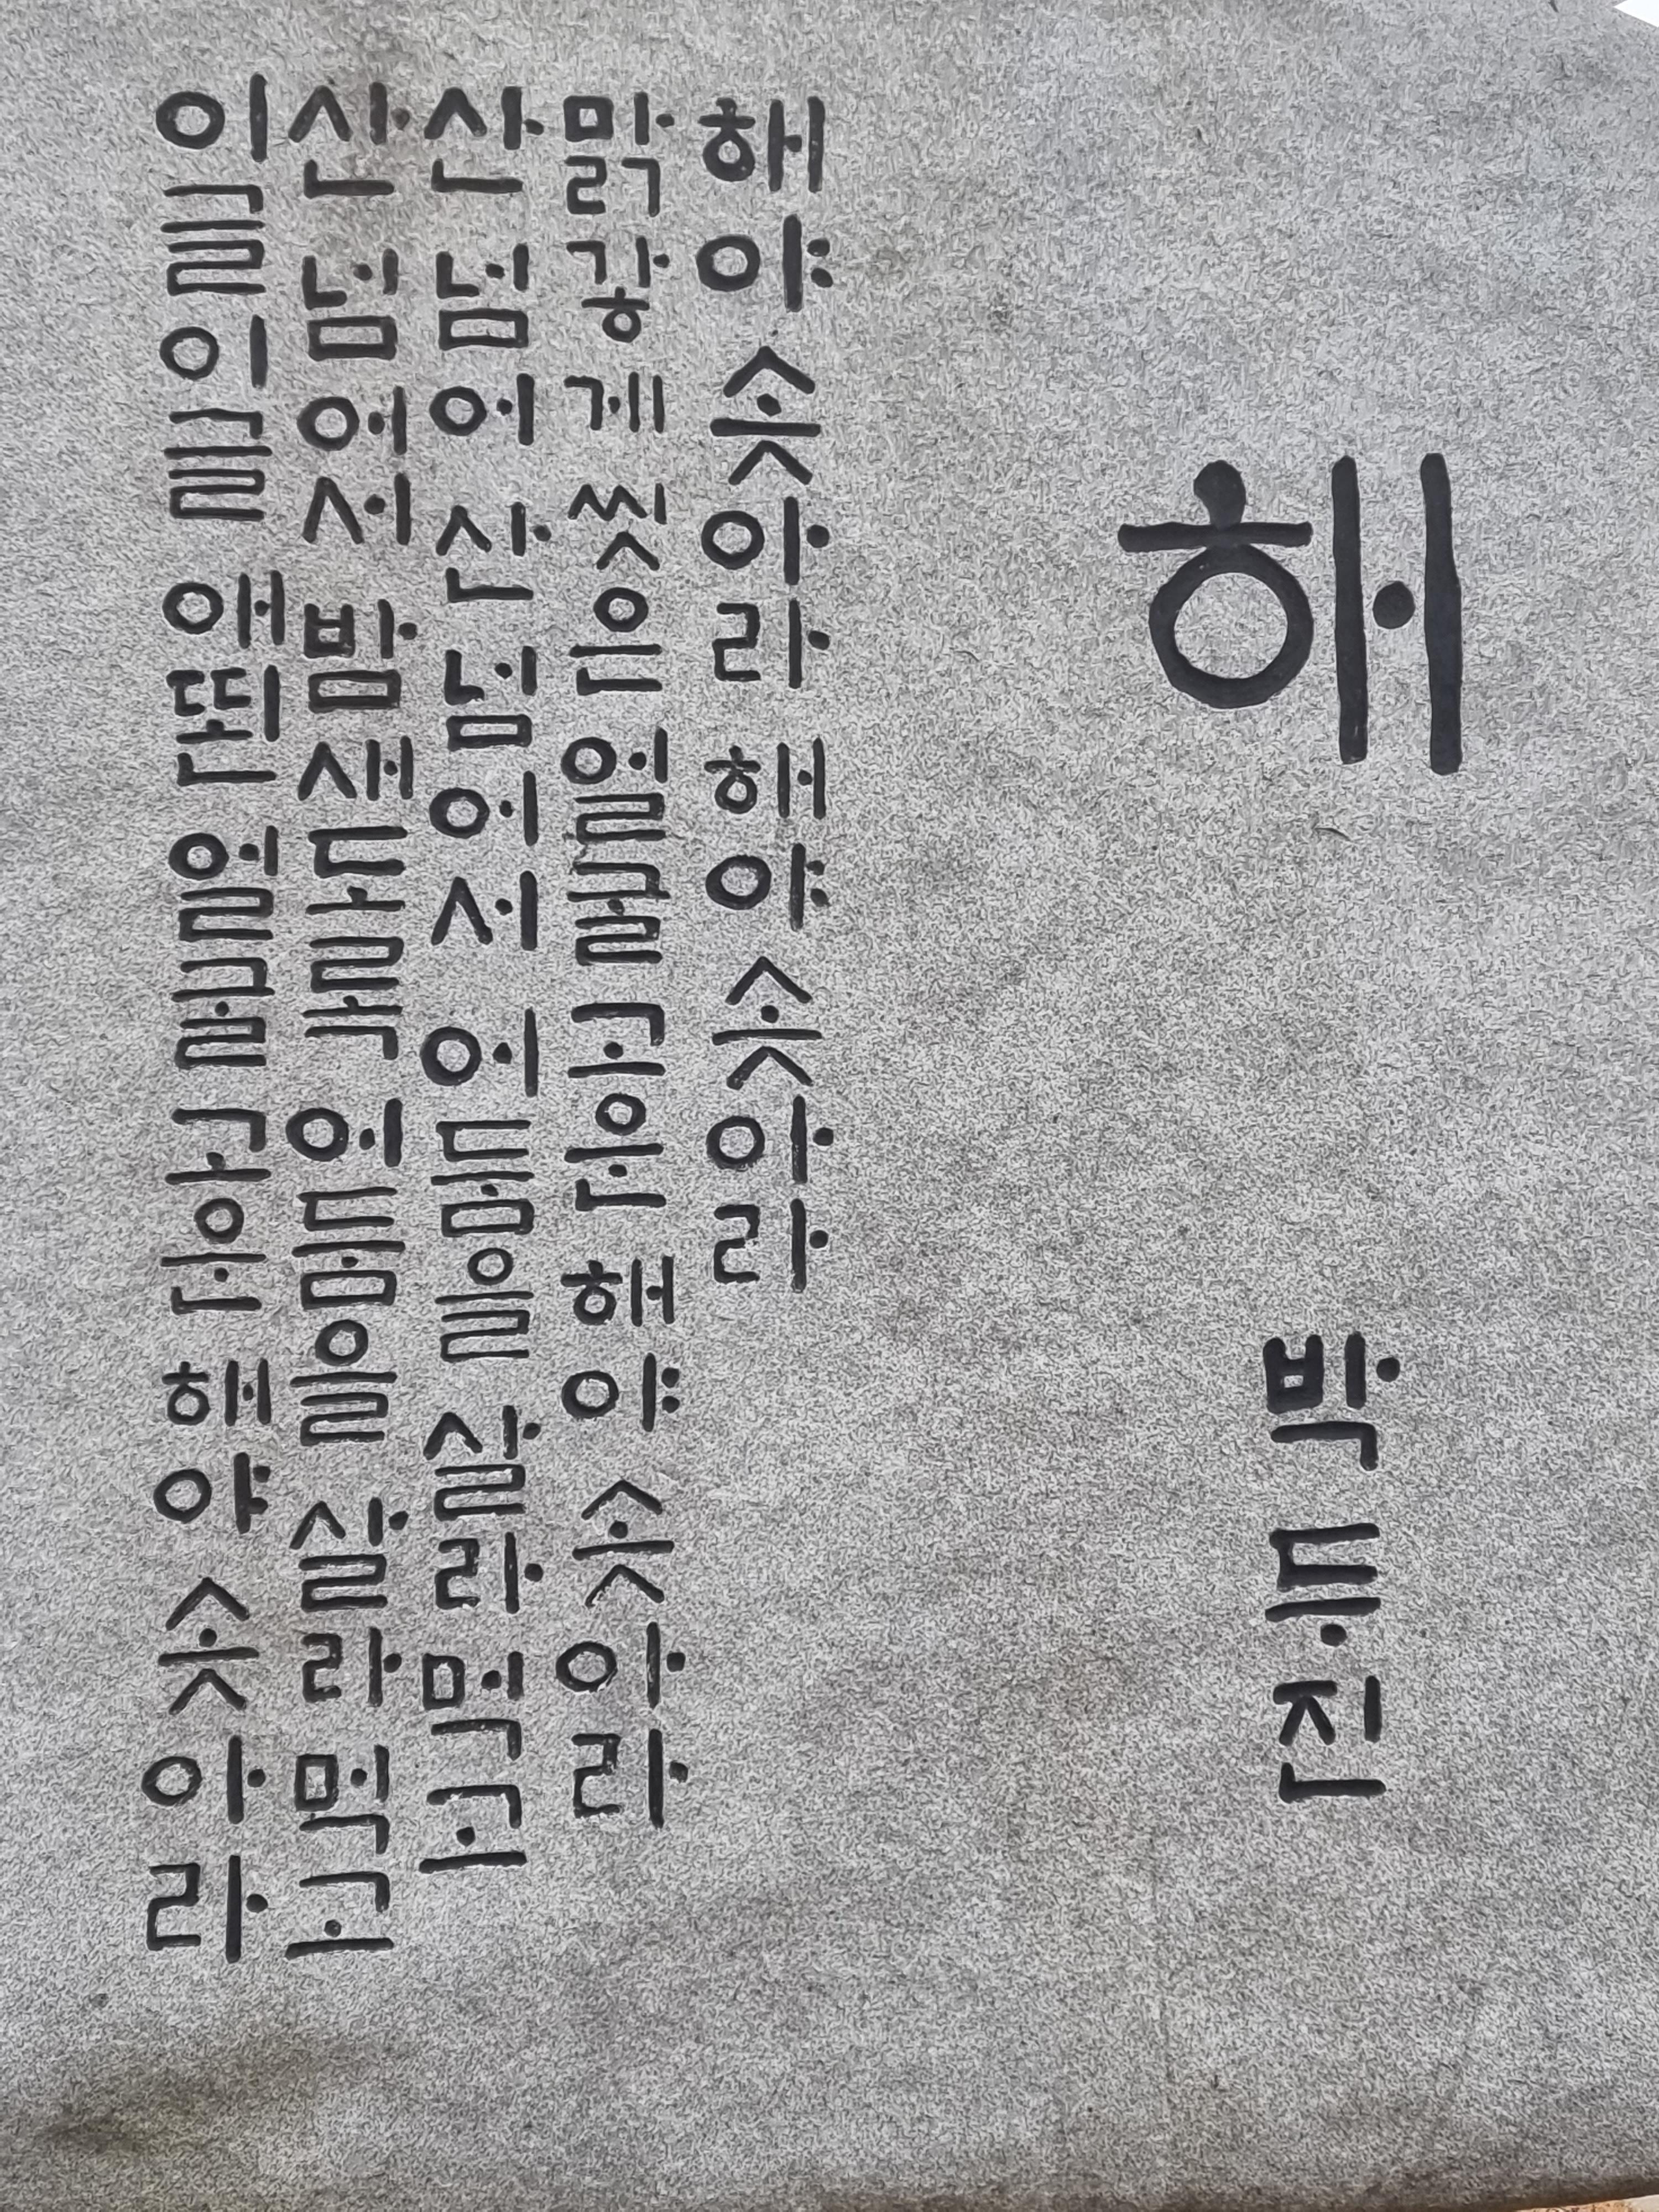 해
박두진
해야 솟아라 해야 솟아라
맑갛게 씻은 얼굴 고운 해야 솟아라
산 넘어 산 넘어서 어둠을 살라 먹고
산 넘어서 밤새도록 어둠을 살라 먹고
이글이글 애띤 얼굴 고운 해야 솟아라